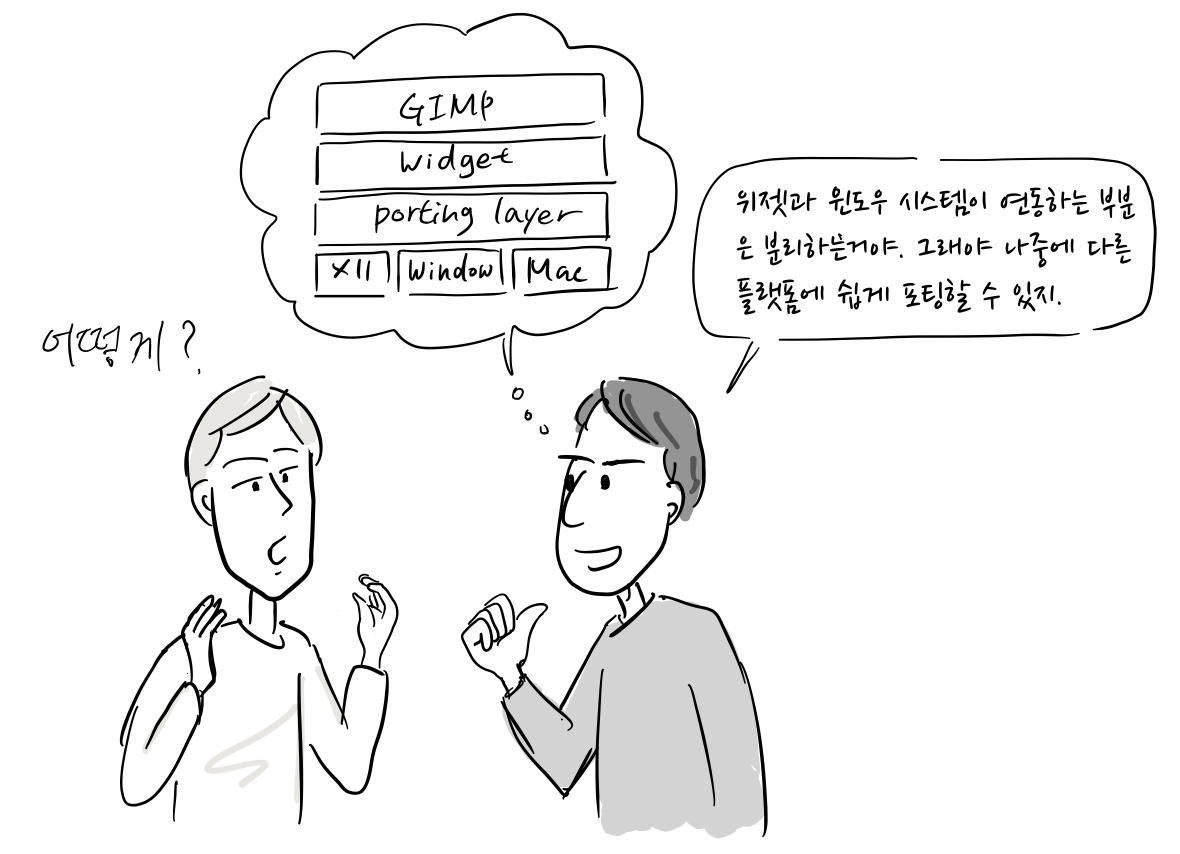 어떻게?
GIMP
widget
porting layer
X11 Window Mac
위젯과 윈도우 시스템이 연동하는 부분
은 분리하는거야. 그래야 나중에 다른
플랫폼에 쉽게 포팅할 수 있지.